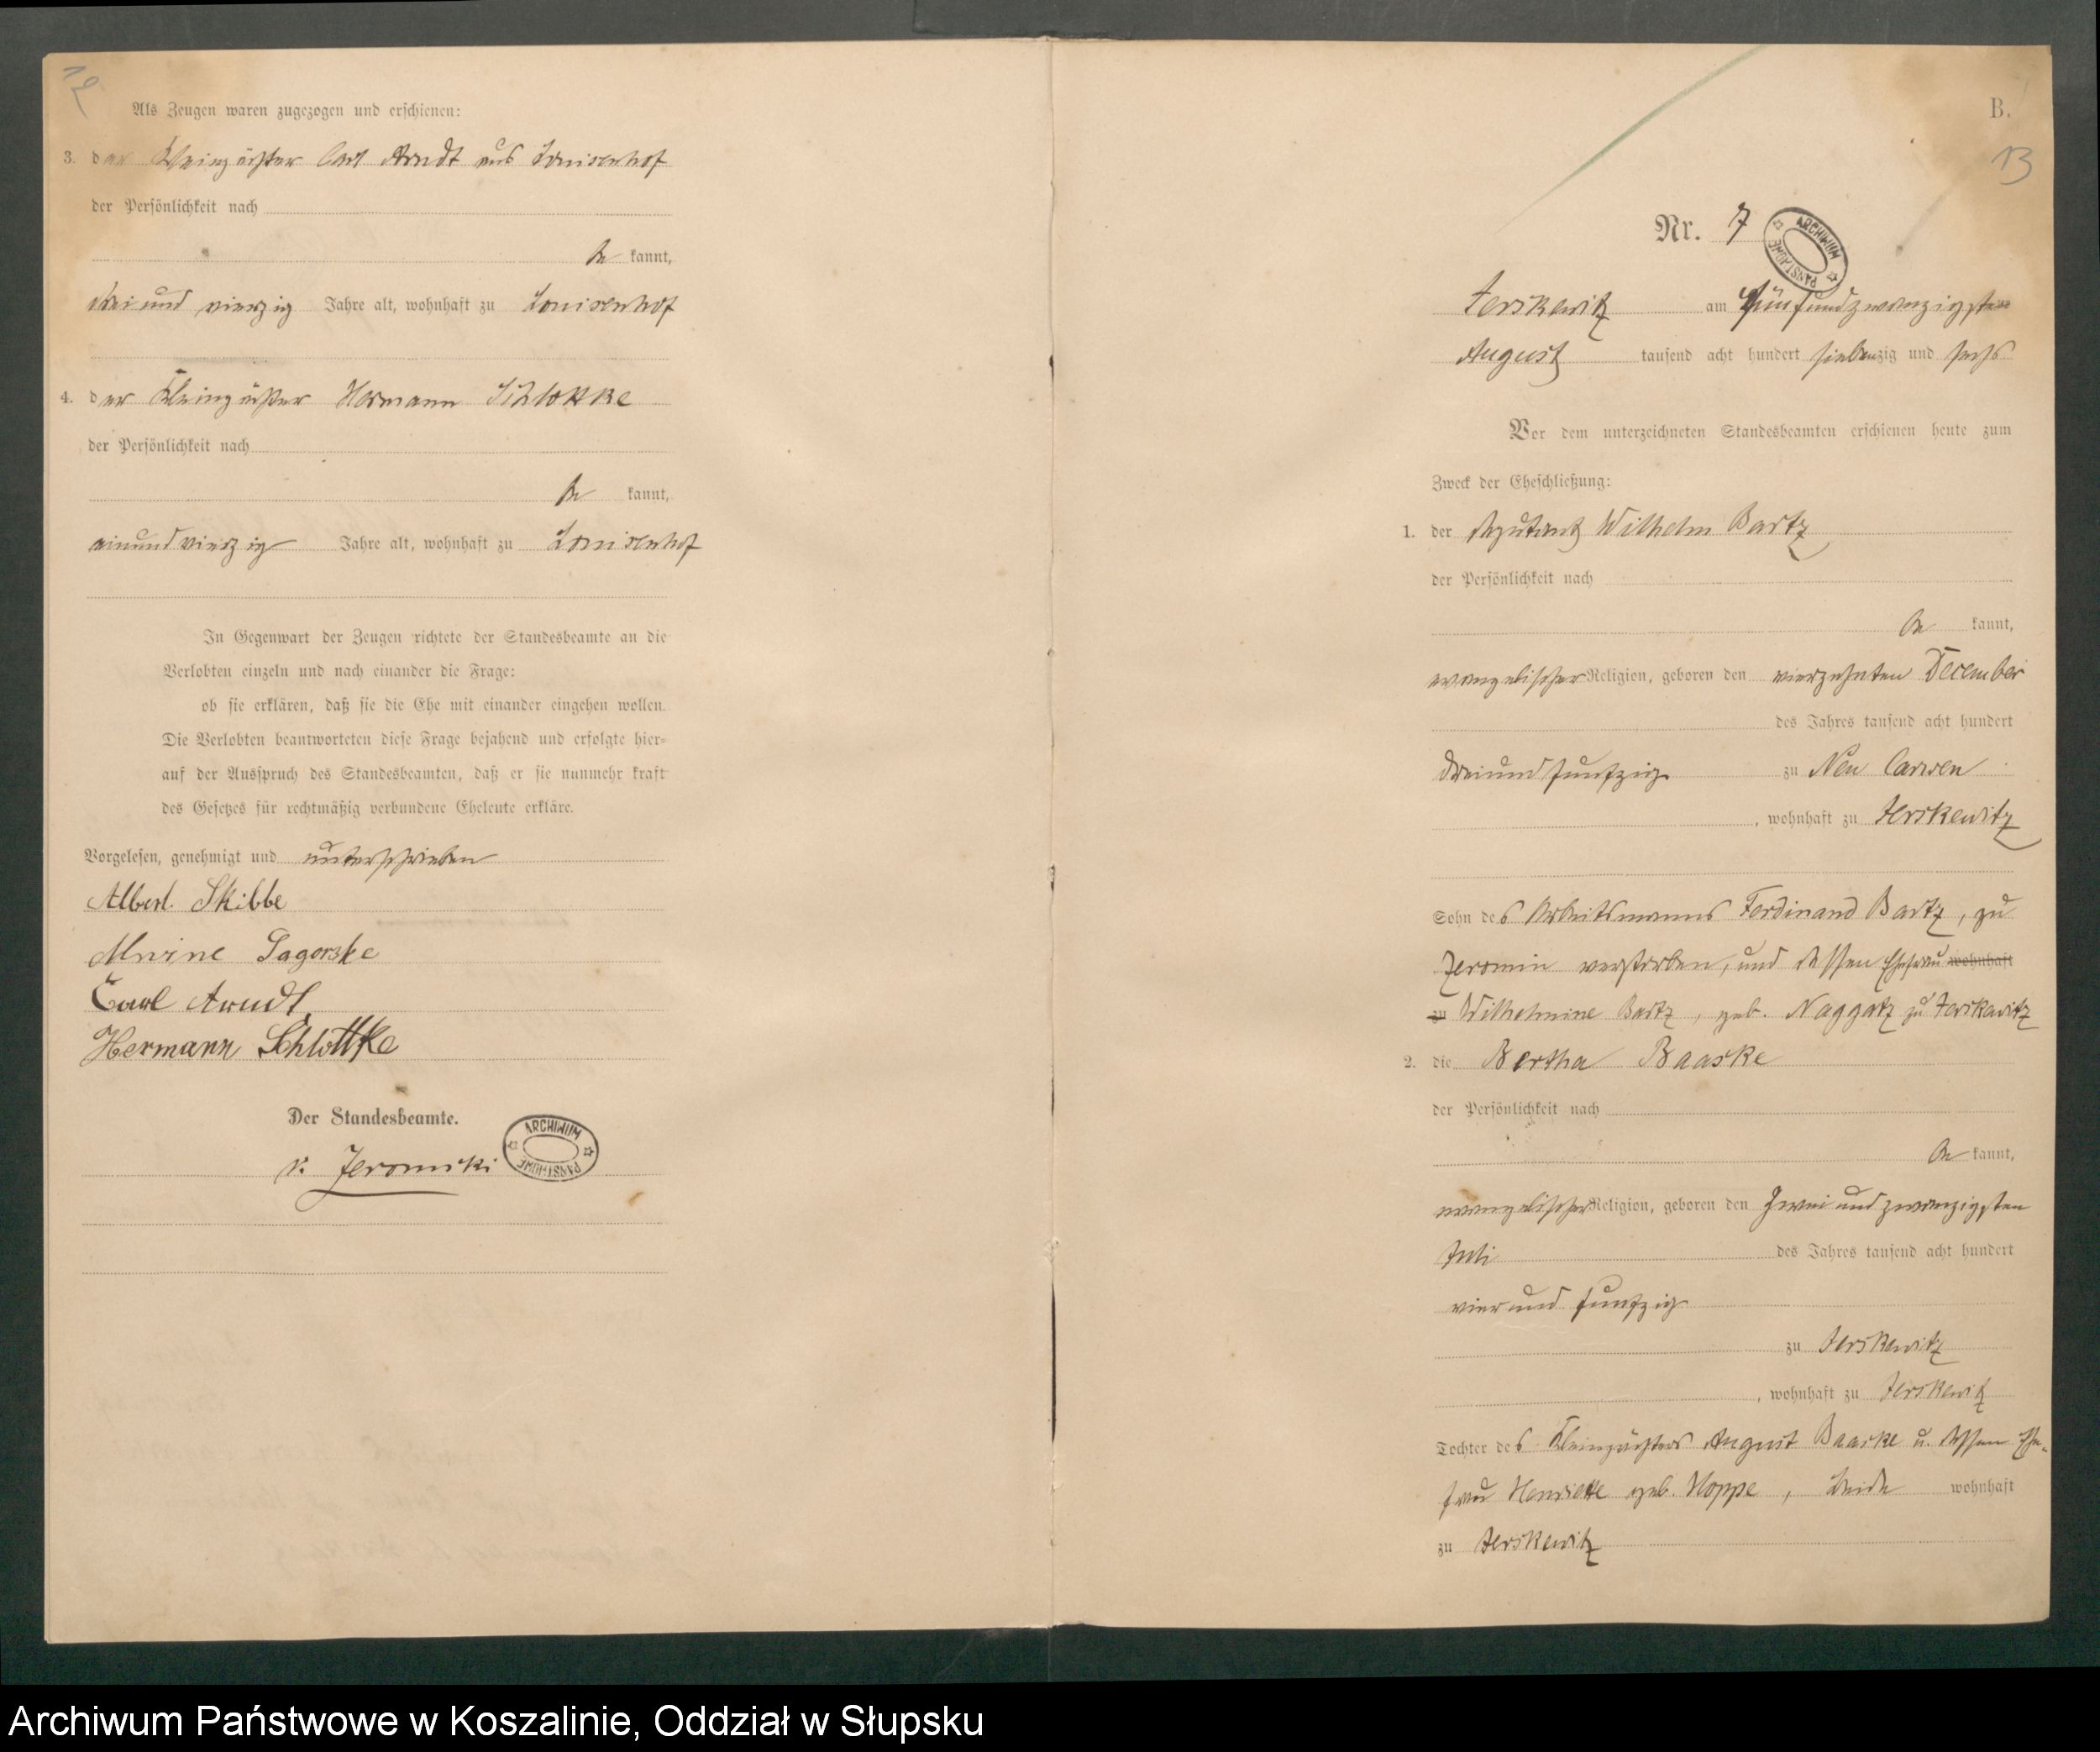 Als Zeugen waren zugezogen und erschienen:
3. der Kleinpächter Carl Arndt aus Louisenhof
der Persönlichkeit nach
be kannt,
drei und vierzig Jahre alt, wohnhaft zu Louisenhof
4. der Kleinpächter Hermann Schlottke
der Persönlichkeit nach
be kannt,
einundvierzig Jahre alt, wohnhaft zu Louisenhof
In Gegenwart der Zeugen richtete der Standesbeamte an die
Verlobten einzeln und nach einander die Frage:
ob sie erklären, daß sie die Ehe mit einander eingehen wollen.
Die Verlobten beantworteten diese Frage bejahend und erfolgte hier-
auf der Ausspruch des Standesbeamten, daß er sie nunmehr kraft
des Gesetzes für rechtmäßig verbundene Eheleute erkläre.
Vorgelesen, genehmigt und unterschrieben
Albert Skibbe
Alwine Pagorske
Carl Arndt
Hermann Schlottke
Der Standesbeamte.
ARCHIWUM PAŃSTWOWE
B.
13
Nr. 7
ARCHIWUM PAŃSTWOWE
Jerskewitz am fünfundzwanzigsten
August tausend acht hundert siebenzig und sechs
Vor dem unterzeichneten Standesbeamten erschienen heute zum
Zweck der Eheschließung:
1. der Deputant Wilhelm Bartz
der Persönlichkeit nach
be kannt,
evangelischer Religion, geboren den vierzehnten December
des Jahres tausend acht hundert
dreiundfunfzig zu Neu Carwen
, wohnhaft zu Jerskewitz
Sohn des Arbeitsmanns Ferdinand Bartz, zu
Jeromin verstorben, und dessen Ehefrau wohnhaft
zu Wilhelmine Bartz, geb. Naggatz zu Jerskewitz
2. die Bertha Baaske
der Persönlichkeit nach
be kannt,
evangelischer Religion, geboren den zwei und zwanzigsten
Juli des Jahres tausend acht hundert
vier und funfzig
zu Jerskewitz
, wohnhaft zu Jerskewitz
Tochter des Kleinpächters August Baaske u. dessen Ehe-
frau Henriette geb. Hoppe, beide wohnhaft
zu Jerskewitz
Archiwum Państwowe w Koszalinie, Oddział w Słupsku